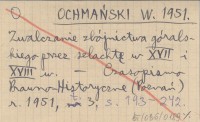 O OCHMAŃSKI W. 1951.
Zwalczanie zbójnictwa góral-
skiego przez szlachtę w XVII i
XVIII w. — Czasopismo
Prawno-Historyczne (Poznań)
r. 1951, nr 3, s. 193-242.